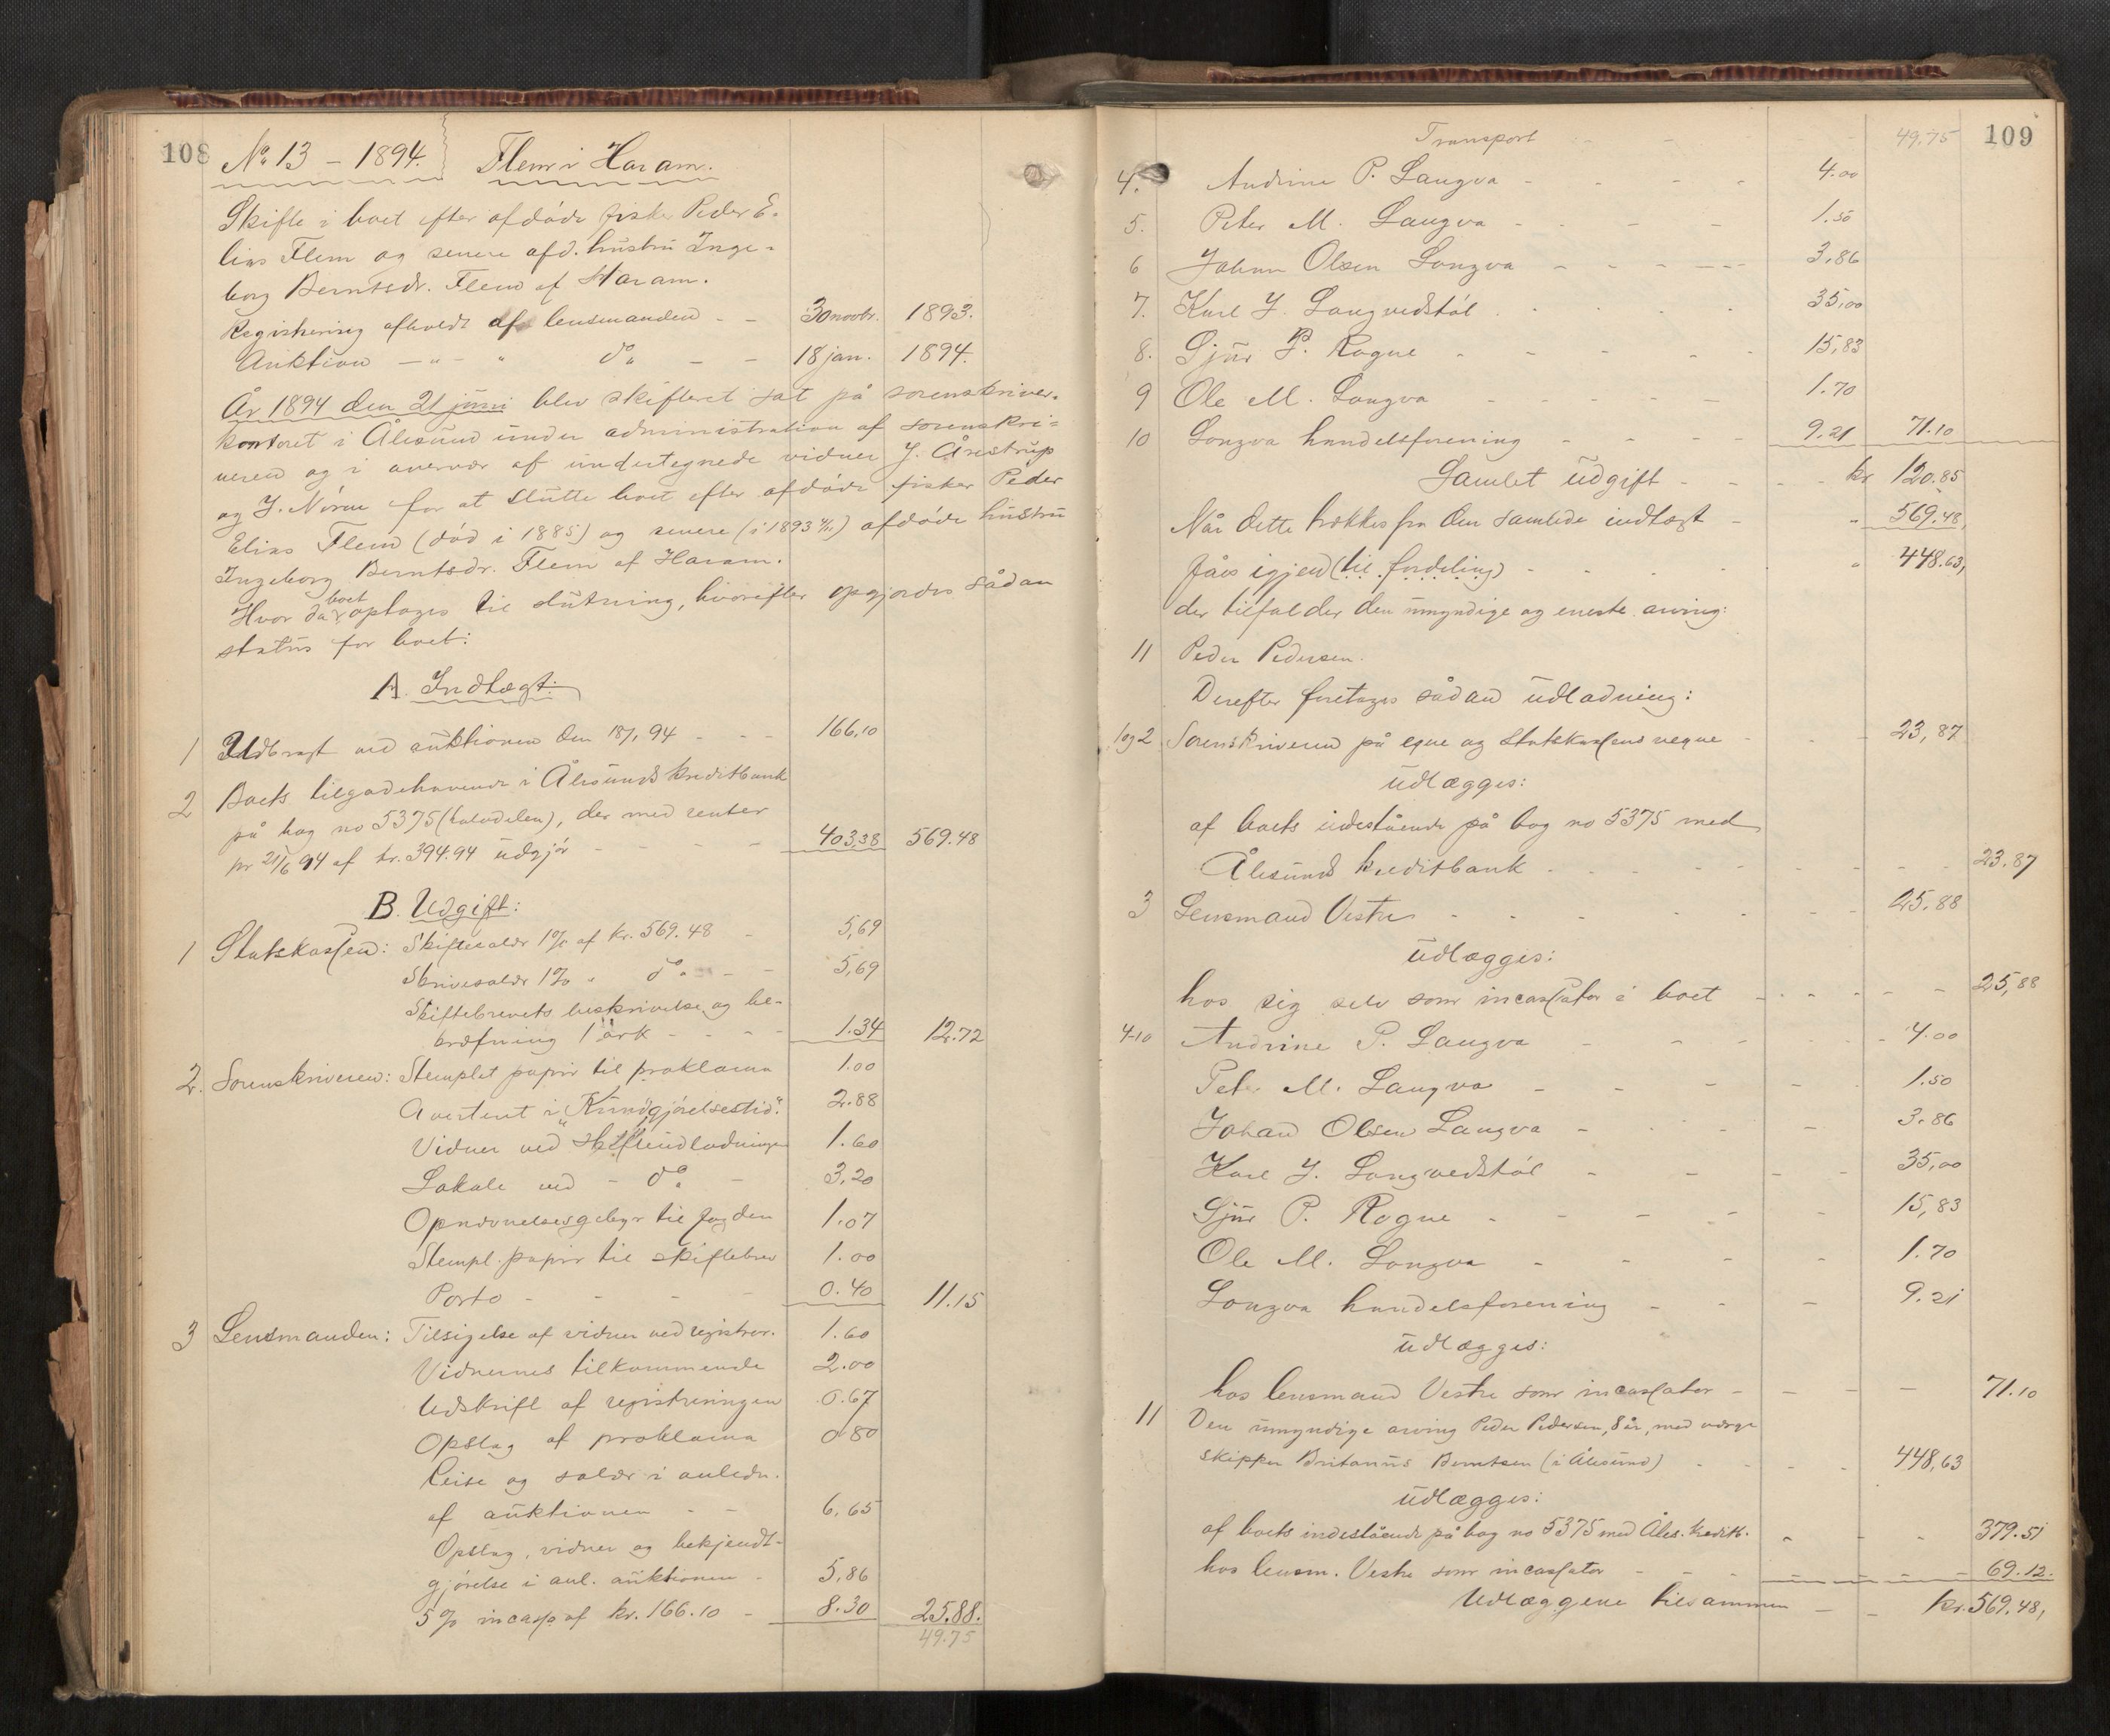 108
No 13 – 1894. Flem i Haram.
Skifte i boet efter afdøde fisker Peder E-
lias Flem og senere afd. hustru Inge-
borg Berntsdr. Flem af Haram.
Registrering afholdt af lensmanden - - 30 novbr. 1893.
Auktion — " — " do - - 18 jan. 1894.
År 1894 den 21 juni blev skifteret sat på sorenskriver-
kontoret i Ålesund under administration af sorenskri-
veren og i overvær af undertegnede vidner J. Årestrup
og J. Nörve for at slutte boet efter afdøde fisker Peder
Elias Flem (död i 1885) og senere (i 1893) afdøde hustru
Ingeborg Berntsdr. Flem af Haram.
Hvor da boet optages til slutning, hvorefter opgjordes sådan
status for boet:
A. Indtægt:
1 Udbragt ved auktionen den 18/1 94 - - - 166,10
2 Boets tilgodehavende i Ålesunds kreditbank
på bog no 5375 (halvdelen), der med renter
pr 21/6 94 af kr. 394.94 udgjör - - - 403,38 569.48
B. Udgift:
1 Statskassen: Skiftesalær 1% af kr. 569.48 - 5,69
Skrivesalær 1% " do - - 5,69
Skiftebrevets beskrivelse og be-
kræftning 1 ark - - - - 1.34 12.72
2. Sorenskriveren: Stemplet papir til proklama 1.00
Avertent i "Kundgjörelsestid." 2.88
Vidner ved skifteudlodningen 1.60
Lokale ved - do - 3,20
Opnævnelsesgebyr til fogden 1.07
Stempl. papir til skiftebrev 1.00
Porto - - - - 0.40 11.15
3 Lensmanden: Tilsigelse af vidner ved registrer. 1.60
Vidnernes tilkommende 2.00
Udskrift af registreringen 0.67
Opslag af proklama 0 80
Reise og salær i anledn.
af auktionen - - 6,65
Opslag, vidner og bekjendt-
gjörelse i anl. auktionen - 5,86
5% incasso af kr. 166.10 - 8.30 25.88.
49.75
109
Transport - - - 49,75
4. Andrine P. Langva - - - - 4.00
5. Peter M. Langva - - - - 1.50
6 Johan Olsen Longva - - - - 3,86
7. Karl J. Longvedstöl - - - - 35,00
8. Sjur P. Rogne - - - - 15,83
9 Ole M. Longva - - - - - 1.70
10 Longva handelsforening - - - - 9.21 71.10
Samlet udgift - - - - kr 120.85
Når dette trækkes fra den samlede indtægt - " 569.48,
fåes igjen (til fordeling) - - - - " 448.63,
der tilfalder den umyndige og eneste arving:
11 Peder Pedersen.
Derefter foretages sådan udlodning:
1 og 2 Sorenskriveren på egne og Statskassens vegne - - - 23,87
udlægges:
af boets indestående på bog no 5375 med
Ålesunds kreditbank - - - - - - - 23.87
3 Lensmand Vestre - - - - - - 25.88
udlægges:
hos sig selv som incassator i boet - - - - - - 25,88
4-10 Andrine P. Langva - - - - 4.00
Peter M. Langva - - - - 1.50
Johan Olsen Langva - - - - 3.86
Karl J. Longvedstöl - - - - 35,00
Sjur P. Rogne - - - - - 15,83
Ole M. Longva - - - - 1.70
Longva handelsforening - - - 9.21
udlægges:
hos lensmand Vestre som incassator - - - - 71.10
11 Den umyndige arving Peder Pedersen, 8 år, med værge
skipper Britanus Berntsen (i Ålesund) - - - - 448,63
udlægges:
af boets indestående på bog no 5375 med Åles. kreditb. - - - 379.51
hos lensm. Vestre som incassator - - - - - - 69.12.
Udlæggene tilsammen - - kr. 569.48,